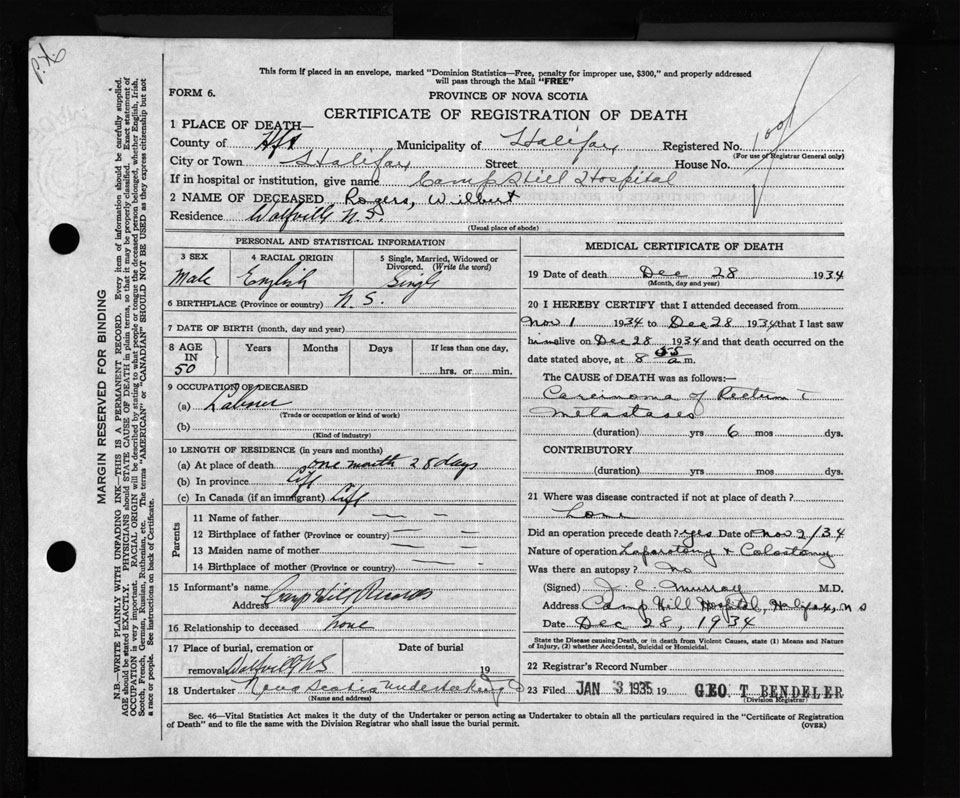 P.X.
This form if placed in an envelope, marked "Dominion Statistics—Free, penalty for improper use, $300," and properly addressed
will pass through the Mail "FREE"
FORM 6.
PROVINCE OF NOVA SCOTIA
CERTIFICATE OF REGISTRATION OF DEATH
1 PLACE OF DEATH—
County of Hfx Municipality of Halifax Registered No. 1001
(For use of Registrar General only)
City or Town Halifax Street House No.
If in hospital or institution, give name Camp Hill Hospital
2 NAME OF DECEASED Rogers, Wilbert
Residence Wolfville N.S.
(Usual place of abode)
PERSONAL AND STATISTICAL INFORMATION
3 SEX 4 RACIAL ORIGIN 5 Single, Married, Widowed or
Divorced. (Write the word)
Male English Single
6 BIRTHPLACE (Province or country) N.S.
7 DATE OF BIRTH (month, day and year)
8 AGE Years Months Days If less than one day,
IN
50 hrs. or min.
9 OCCUPATION OF DECEASED
(a) Labourer
(Trade or occupation or kind of work)
(b)
(Kind of industry)
10 LENGTH OF RESIDENCE (in years and months)
(a) At place of death one month 28 days
(b) In province Life
(c) In Canada (if an immigrant) Life
Parents
11 Name of father — —
12 Birthplace of father (Province or country) — —
13 Maiden name of mother — —
14 Birthplace of mother (Province or country) — —
15 Informant's name Camp Hill Records
Address
16 Relationship to deceased none
17 Place of burial, cremation or Date of burial
removal Wolfville N S 19
18 Undertaker Nova Scotia Undertaking Co
(Name and address)
MEDICAL CERTIFICATE OF DEATH
19 Date of death Dec 28 1934
(Month, day and year)
20 I HEREBY CERTIFY that I attended deceased from
Nov 1 1934 to Dec 28 1934 that I last saw
him alive on Dec 28 1934 and that death occurred on the
date stated above, at 8 55 a.m.
The CAUSE OF DEATH was as follows:—
Carcinoma of Rectum c̄
Metastases
(duration) yrs 6 mos dys.
CONTRIBUTORY
(duration) yrs mos dys.
21 Where was disease contracted if not at place of death?
Home
Did an operation precede death? yes Date of Nov 9/34
Nature of operation Laparotomy & Colostomy
Was there an autopsy? No
(Signed) J. C. Murray M.D.
Address Camp Hill Hospital, Halifax, N S
Date Dec 28, 1934
State the Disease causing Death, or in death from Violent Causes, state (1) Means and Nature
of Injury, (2) whether Accidental, Suicidal or Homicidal.
22 Registrar's Record Number
23 Filed JAN 3 1935 19 GEO T BENDELER
(Division Registrar)
Sec. 46—Vital Statistics Act makes it the duty of the Undertaker or person acting as Undertaker to obtain all the particulars required in the "Certificate of Registration
of Death" and to file the same with the Division Registrar who shall issue the burial permit. (OVER)
MARGIN RESERVED FOR BINDING
N.B.—WRITE PLAINLY WITH UNFADING INK—THIS IS A PERMANENT RECORD. Every item of information should be carefully supplied.
AGE should be stated EXACTLY. PHYSICIANS should STATE CAUSE OF DEATH in plain terms, so that it may be properly classified. Exact statement of
OCCUPATION is very important. RACIAL ORIGIN will be described by stating to what people or tongue the deceased person belonged, whether English, Irish,
Scotch, French, German, Russian, Ruthenian, etc. The terms "AMERICAN" or "CANADIAN" SHOULD NOT BE USED as they express citizenship but not
a race or people. See instructions on back of Certificate.